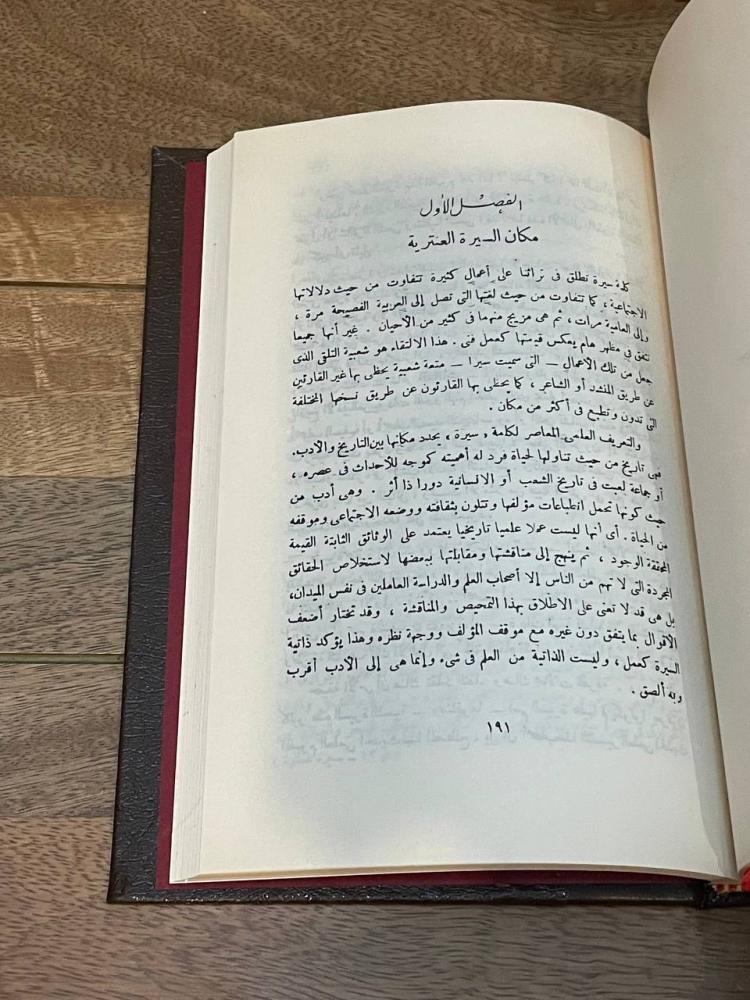 الفصل الأول
مكان السيرة العنترية
كلمة سيرة تطلق فى تراثنا على أعمال كثيرة تتفاوت من حيث دلالاتها
الاجتماعية ، كما تتفاوت من حيث لغتها التى تصل إلى العربية الفصيحة مرة ،
وإلى العامية مرات ، ثم هى مزيج منهما فى كثير من الأحيان . غير أنها جميعا
تتفق فى مظهر هام يعكس قيمتها كعمل فنى . هذا الالتقاء هو شعبية التلقى الذى
جعل من تلك الأعمال — التى سميت سيرا — متعة شعبية يحظى بها غير القارئين
عن طريق المنشد أو الشاعر ، كما يحظى بها القارئون عن طريق نسخها المختلفة
التى تدون وتطبع فى أكثر من مكان .
والتعريف العلمى المعاصر لكلمة « سيرة » يحدد مكانها بين التاريخ والأدب.
فهى تاريخ من حيث تناولها لحياة فرد له أهميته كموجه للأحداث فى عصره ،
أو جماعة لعبت فى تاريخ الشعب أو الانسانية دورا ذا أثر . وهى أدب من
حيث كونها تحمل انطباعات مؤلفها وتتلون بثقافته ووضعه الاجتماعى وموقفه
من الحياة . أى أنها ليست عملا علميا تاريخيا يعتمد على الوثائق الثابتة القيمة
المحققة الوجود ، ثم ينهج إلى مناقشتها ومقابلتها ببعضها لاستخلاص الحقائق
المجردة التى لا تهم من الناس إلا أصحاب العلم والدراسة العاملين فى نفس الميدان،
بل هى قد لا تعنى على الاطلاق بهذا التمحيص والمناقشة ، وقد تختار أضعف
الاقوال بما يتفق دون غيره مع موقف المؤلف ووجهة نظره وهذا يؤكد ذاتية
السيرة كعمل ، وليست الذاتية من العلم فى شىء وإنما هى إلى الأدب أقرب
وبه ألصق .
١٩١